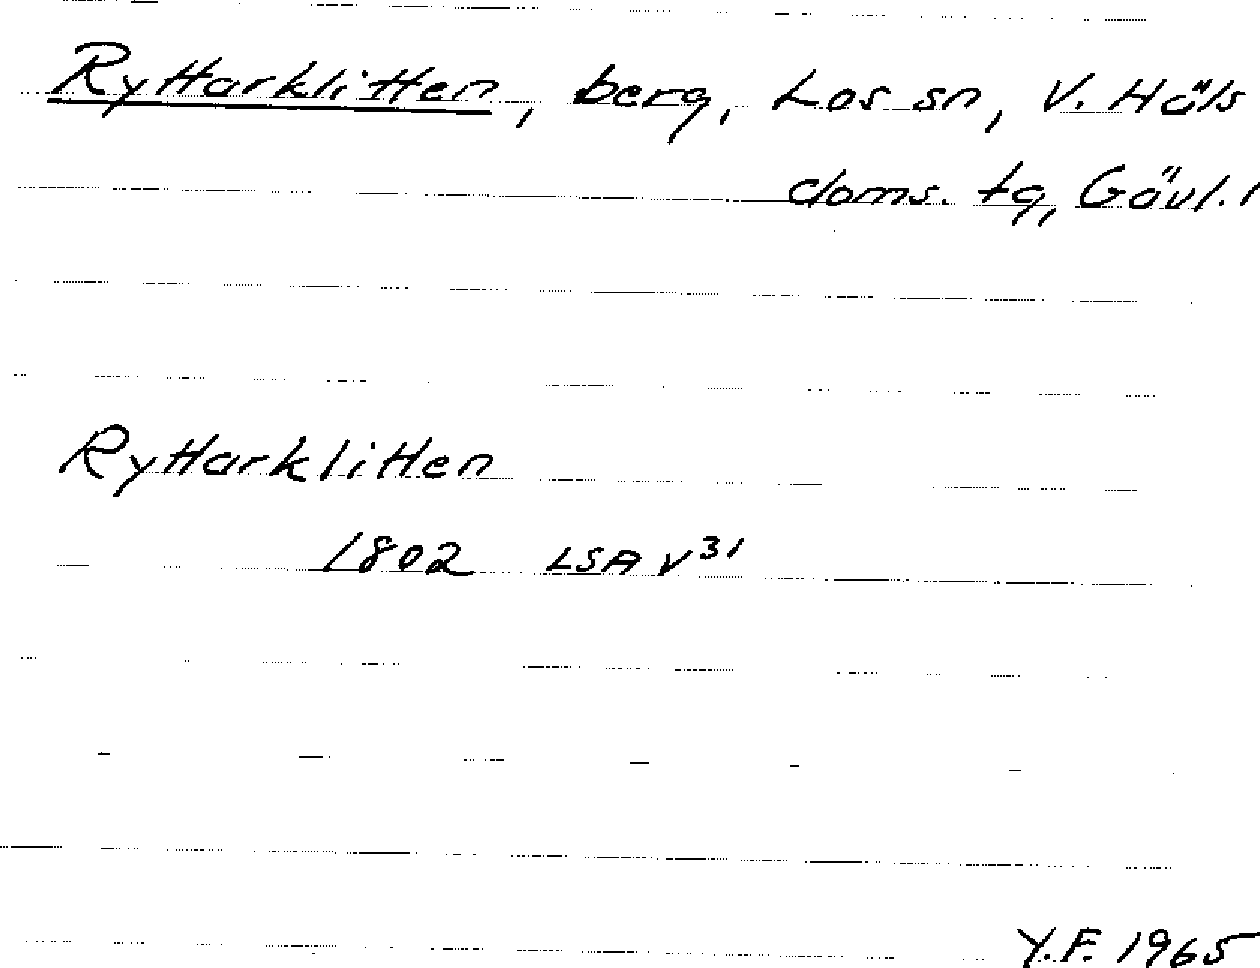 Ryttarklitten, berg, Los sn, V. Häls
doms. tg, Gävl. l
Ryttarklitten
1802 LSA V³¹
Y.F. 1965